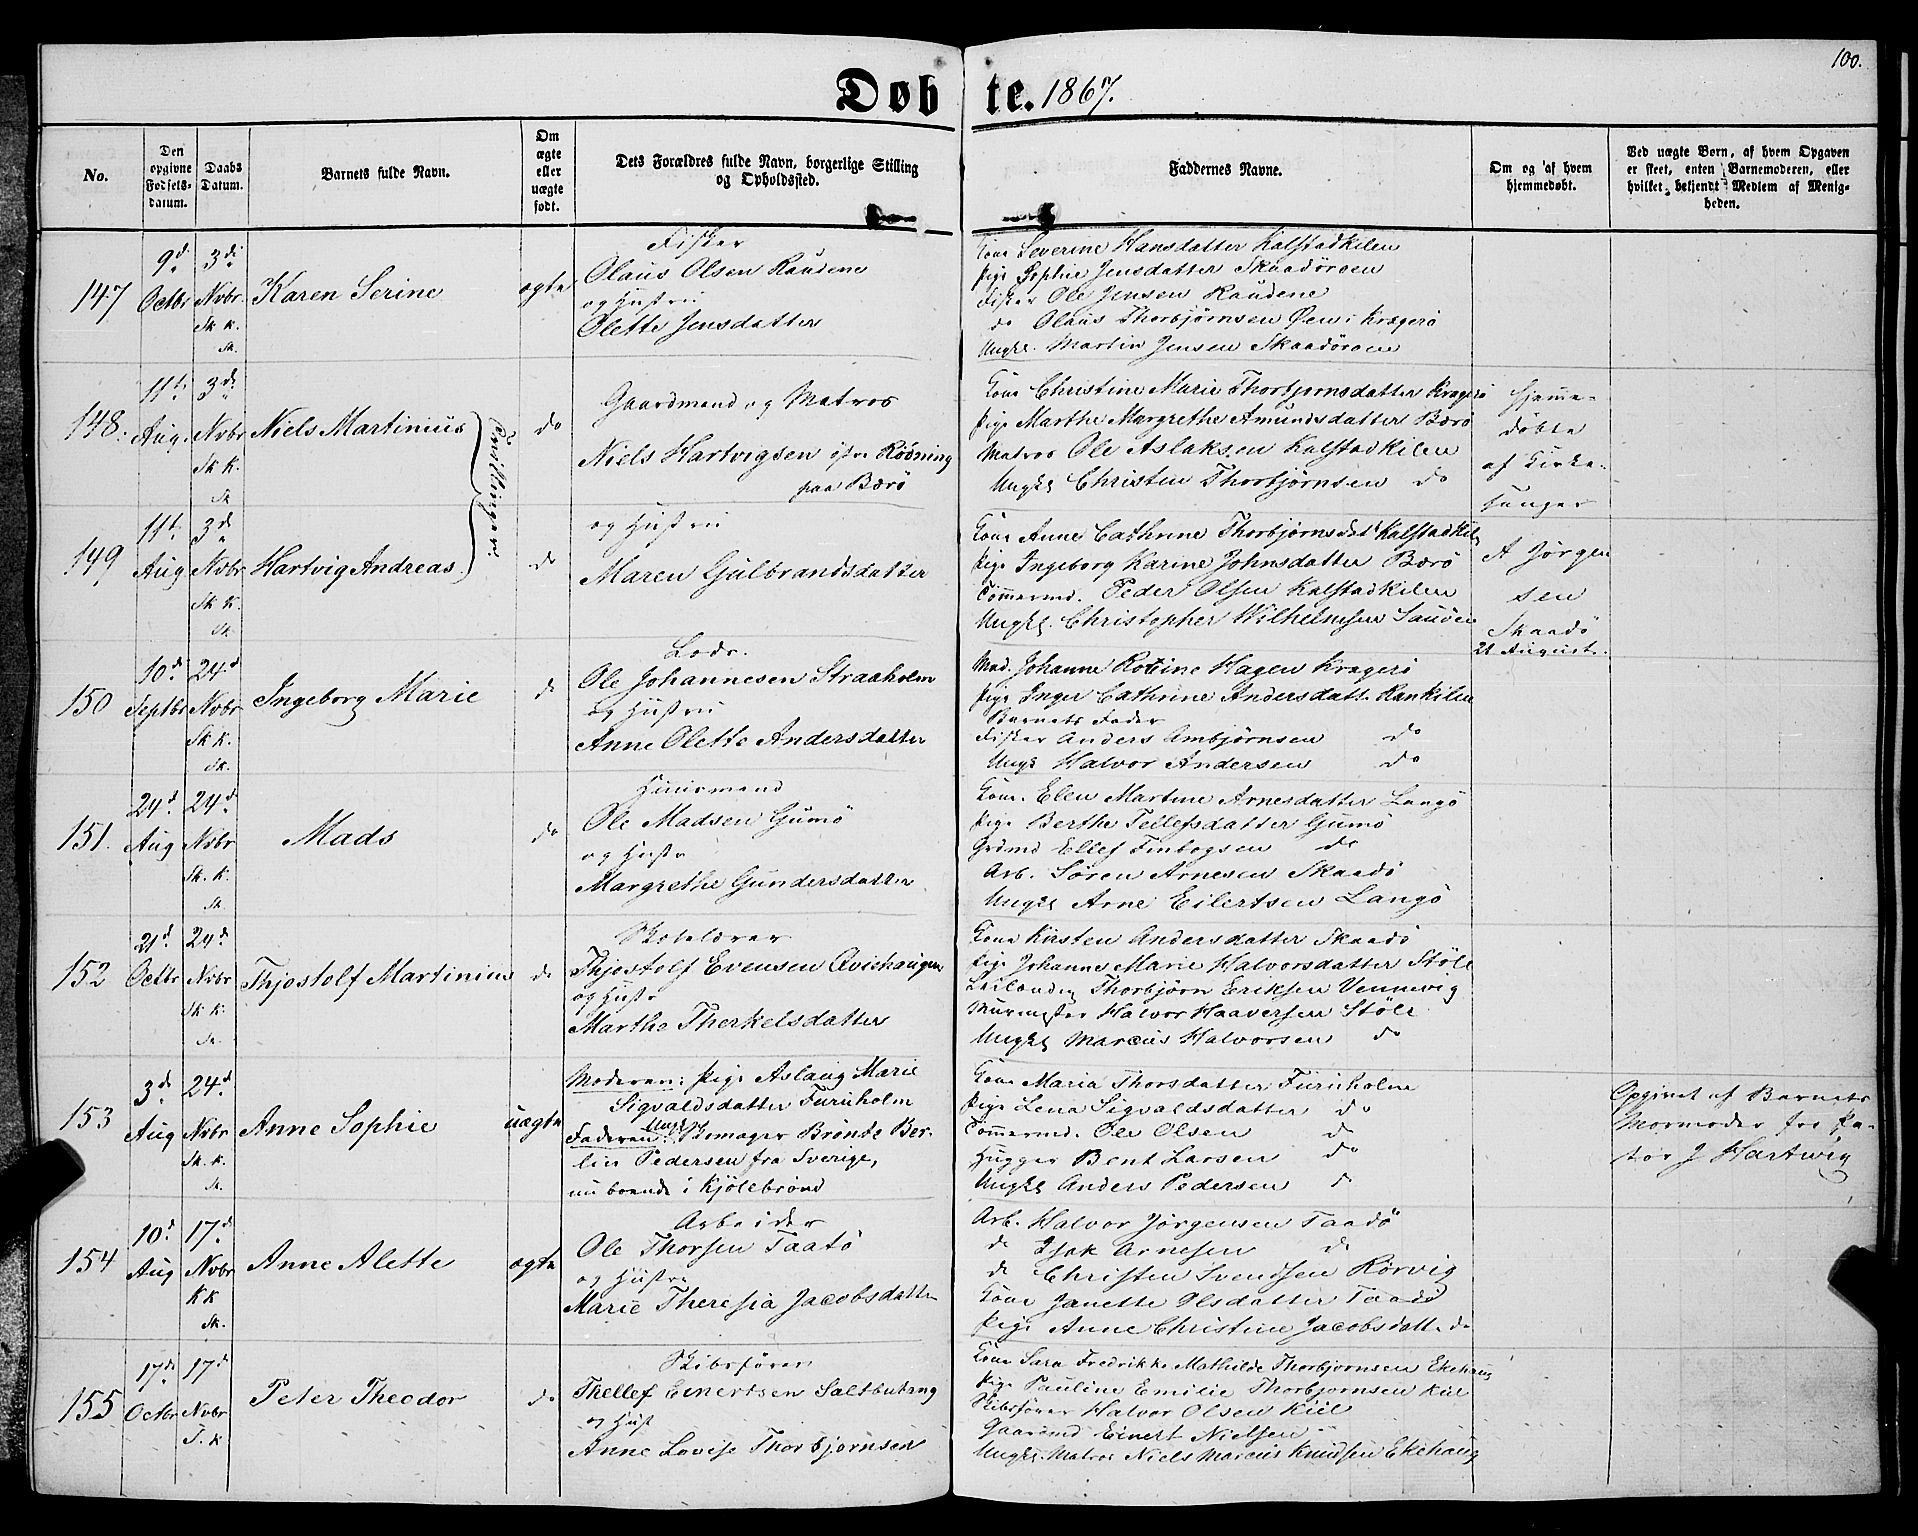 100.
Døbte. 1867.
No.
Den opgivne Fødsels-datum.
Daabs Datum.
Barnets fulde Navn.
Om ægte eller uægte født.
Dets Forældres fulde Navn, borgerlige Stilling og Opholdssted.
Faddernes Navne.
Om og af hvem hjemmedøbt.
Ved uægte Børn, af hvem Opgaven er skeet, enten Barnemoderen, eller hvilket bekjendt Medlem af Menigheden.
147
9d Octbr
3di Nvbr
Sk k.
Sk.
Karen Serine
ægte
Fisker
Olaus Olsen Raudene
og Hustru
Olette Jensdatter
Kone Severine Hansdatter Kalstadkilen
Pige Sophie Jensdatter Skaadøroen
Fisker Ole Jensen Raudene
do Olaus Thorbjørnsen Øen i Kragerö
Ungk. Martin Jensen Skaadøroen
148.
11t Aug.
3di Nvbr
Sk K.
Sk
Niels Martinius
Tvillinger.
do
Gaardmand og Matros
Niels Hartvigsen østre Rödning
paa Bærö
Kone Christine Marie Thorbjornsdatter Kragerö
Pige Marthe Margrethe Amundsdatter Bærö
Matros Ole Aslaksen Kalstadkilen
Ungk Christen Thorbjørnsen do
Hjemme-
døbte
af Kirke-
sanger
149
11t Aug
3d Nvbr
Sk K.
Sk.
Hartvig Andreas
do
og Hustru
Maren Gulbrandsdatter
Kone Anne Cathrine Thorbjørnsdat Kalstadkil
Pige Ingeborg Karine Johnsdatter Bærö
Tömmermd. Peder Olsen Kalstadkilen
Ungk. Christopher Wilhelmsen Sauöen
A Jörgen
sen
Skaadö
21 August.
150
10d Septbr
24d Nvbr
Sk K.
Sk.
Ingeborg Marie
do
Lods.
Ole Johannesen Straaholm
og Hustru
Anne Olette Andersdatter
Mad. Johanne Rotine Hagen Kragerö
Pige Inger Cathrine Andersdatt Kankilen
Barnets Fader
Fisker Anders Ambjörnsen do
Ungk Halvor Andersen do
151.
24d Aug
24d Nvbr
Sk. K.
Sk
Mads
do
Huusmand
Ole Madsen Gumö
og Hustr
Margrethe Gundersdatter
Kone. Elen Martine Arnesdatter Langö
Pige Berthe Tellefsdatter Gumö
Grdmd Ellef Finbogsen do
Arb. Sören Arnesen Skaadö
Ungk Arne Eilertsen Langö
152
21d Octbr
24d Nvbr
Sk K.
Sk.
Thjostolf Martinius
do
Skolelærer
Thjostolf Evensen Qvishaugen
og Hustr
Marthe Therkelsdatter
Kone Kirsten Andersdatter Skaadö
Pige Johanne Marie Halvorsdatter Stöle
Leilænding Thorbjörn Eriksen Vennevig
Murmester Halvor Haaversen Stöle
Ungk Marcus Halvorsen do
153
3d Aug
24d Nvbr
Sk. K.
Sk.
Anne Sophie
uægte
Moderen: Pige Aslaug Marie
Sigvaldsdatter Furuholm
Faderen: Ungk Skomager Brönde Ber-
lin Pedersen fra Sverige,
nu boende i Kjölebrönd
Kone Maria Thorsdatter Furuholm
Pige Lena Sigvaldsdatter do
Tömmermd. Ole Olsen do
Hugger Bent Larsen do
Ungk Anders Pedersen do
Opgivet af Barnets
Mormoder for Pa-
stor J Hartwig
154
10d Aug
17d Nvbr
K K
Sk.
Anne Alette
ægte
Arbeider
Ole Thorsen Taatö
og Hustru
Marie Theresia Jacobsdatter
Arb. Halvor Jörgensen Taadö
do Isak Arnesen do
do Christen Svendsen Rörvig
Kone Janette Olsdatter Taadö
Pige Anne Christine Jacobsdatt do
155
17de Octbr
17d Nvbr
S. k
Peter Theodor
do
Skibsfører
Thellef Einertsen Saltbutang
og Hust
Anne Lovise Thorbjornsen
Kone Sara Fredrikke Mathilde Thorbjornsen Ekehaug
Pige Pauline Emilie Thorbjornsen Kiil
Skibsfører Halvor Olsen Kiil
Gaardmd Einert Nielsen
Ungk. Matros Niels Marcus Knudsen Ekehaug